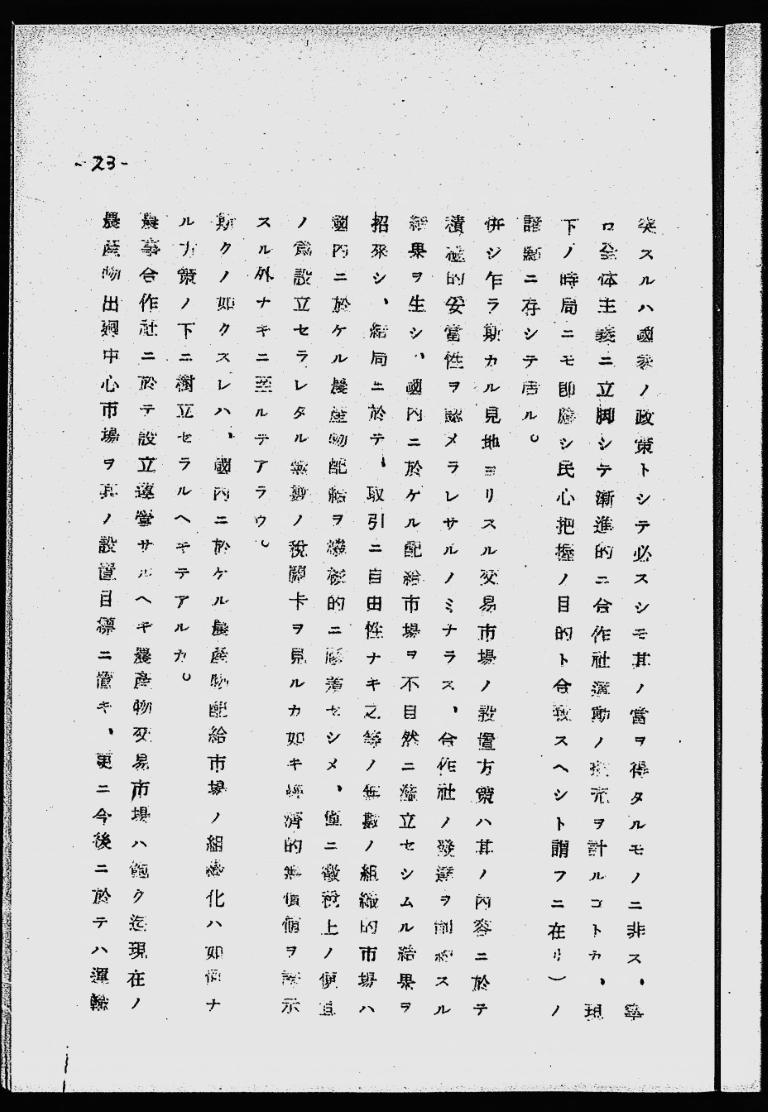 -23-
突スルハ國家ノ政策トシテ必スシモ其ノ當ヲ得タルモノニ非ス、寧
ロ全体主義ニ立脚シテ漸進的ニ合作社運動ノ拡充ヲ計ルコトカ、現
下ノ時局ニモ即應シ民心把握ノ目的ト合致スヘシト謂フニ在リ)ノ
諸點ニ存シテ居ル。
併シ乍ラ斯カル見地ヨリスル交易市場ノ設置方策ハ其ノ內容ニ於テ
積極的妥當性ヲ認メラレサルノミナラス、合作社ノ發達ヲ制約スル
結果ヲ生シ、國內ニ於ケル配給市場ヲ不自然ニ濫立セシムル結果ヲ
招來シ、結局ニ於テ、取引ニ自由性ナキ之等ノ無數ノ組織的市場ハ
國內ニ於ケル農產物配給ヲ セシメ、僅ニ徵稅上ノ便宜
ノ爲設立セラレタル無數ノ稅關卡ヲ見ルカ如キ經濟的無價値ヲ 示
スル外ナキニ至ルテアラウ。
斯クノ如クスレハ、國內ニ於ケル農產物配給市場ノ組織化ハ如何ナ
ル方策ノ下ニ樹立セラルヘキテアルカ。
農事合作社ニ於テ設立運營サルヘキ農產物交易市場ハ飽ク迄現在ノ
農產物出廻中心市場ヲ其ノ設置目標ニ置キ、更ニ今後ニ於テハ運輸